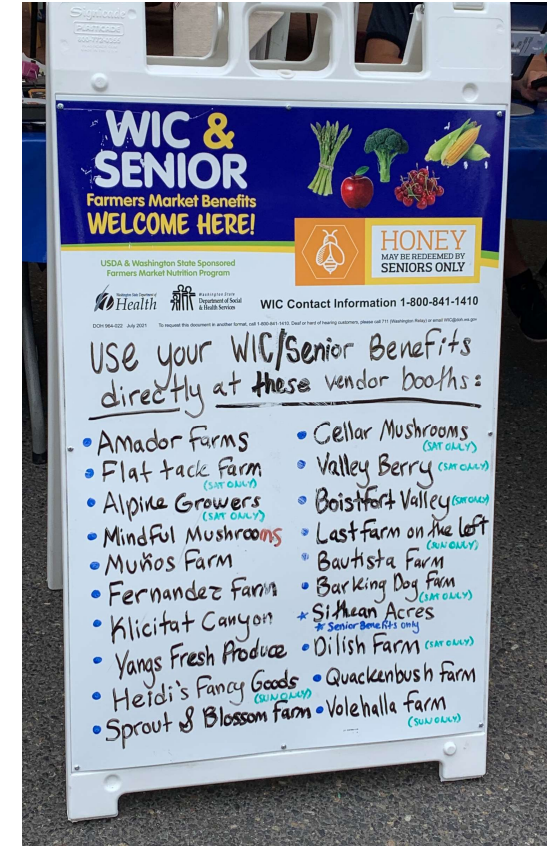 WIC &
SENIOR
Farmers Market Benefits
WELCOME HERE!
HONEY
MAY BE REDEEMED BY
SENIORS ONLY
USDA & Washington State Sponsored
Farmers Market Nutrition Program
Washington State Department of
Health
Washington State
Department of Social
& Health Services
WIC Contact Information 1-800-841-1410
DOH 964-022 July 2021 To request this document in another format, call 1-800-841-1410. Deaf or hard of hearing customers, please call 711 (Washington Relay) or email WIC@doh.wa.gov
Use your WIC/Senior Benefits
directly at these vendor booths:
• Amador farms
• Flat tack farm
(SAT ONLY)
• Alpine Growers
(SAT ONLY)
• Mindful Mushrooms
• Muños Farm
• Fernandez Farm
• Klicitat Canyon
• Yangs Fresh Produce
• Heidi's Fancy Goods
(SUN ONLY)
• Sprout & Blossom farm
• Cellar Mushrooms
(SAT ONLY)
• Valley Berry (SAT ONLY)
• Boistfort Valley (SAT ONLY)
• Last farm on the left
(SUN ONLY)
• Bautista Farm
• Barking Dog farm
(SAT ONLY)
* Sithean Acres
* Senior Benefits only
• Dilish Farm (SAT ONLY)
• Quackenbush farm
• Volehalla farm
(SUN ONLY)